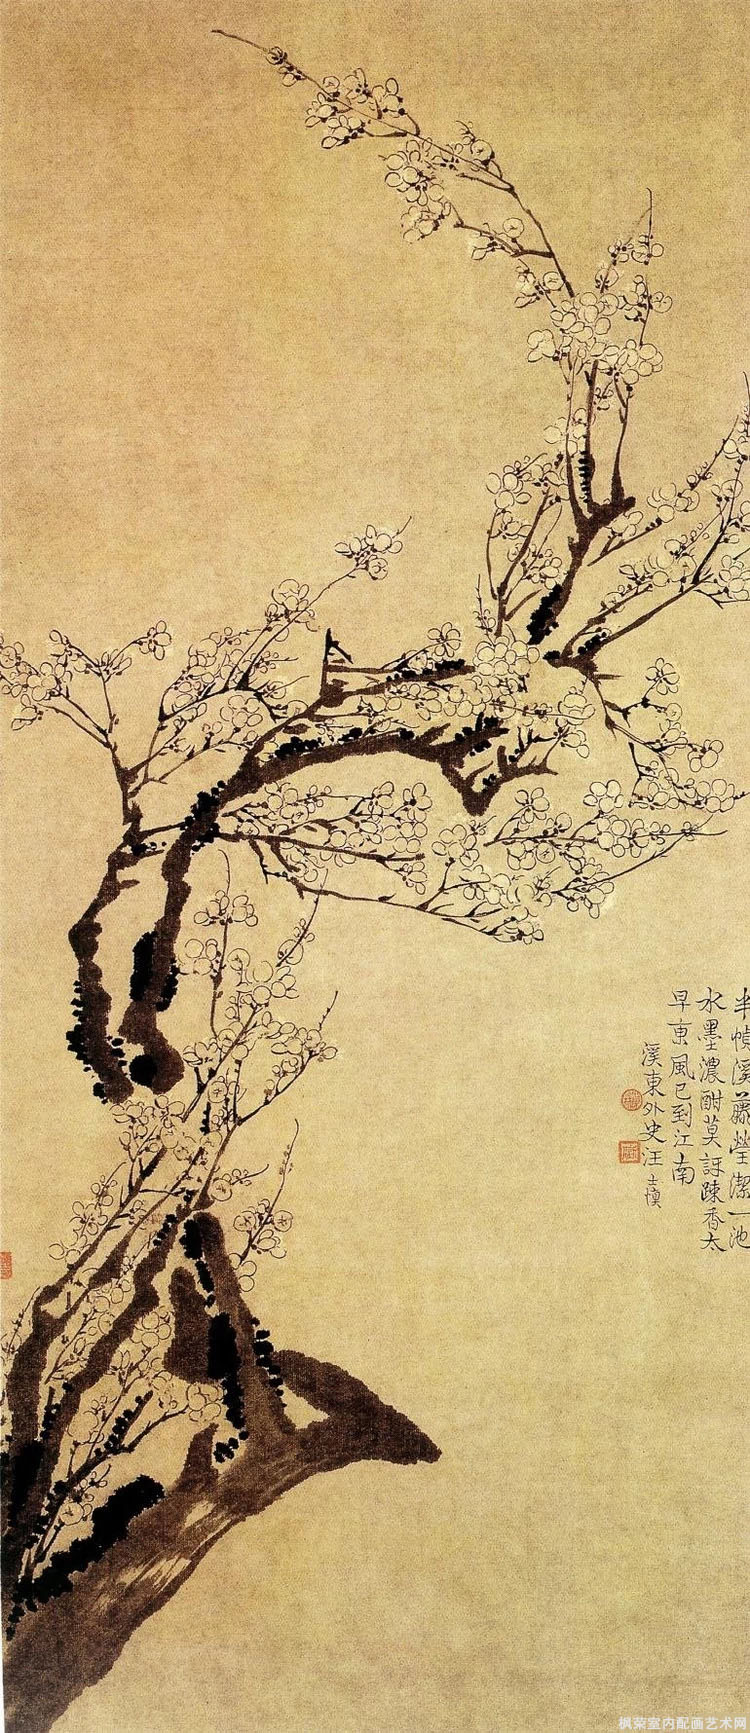 半幀溪藤瑩潔一池
水墨濃酣莫訝疎香太
早東風已到江南
溪東外史汪士慎
枫荣室内配画艺术网